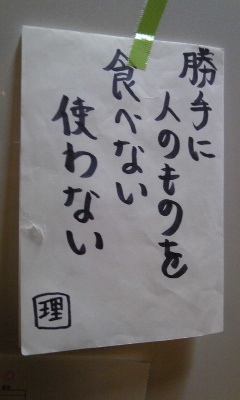 勝手に
人のものを
食べない
使わない
理